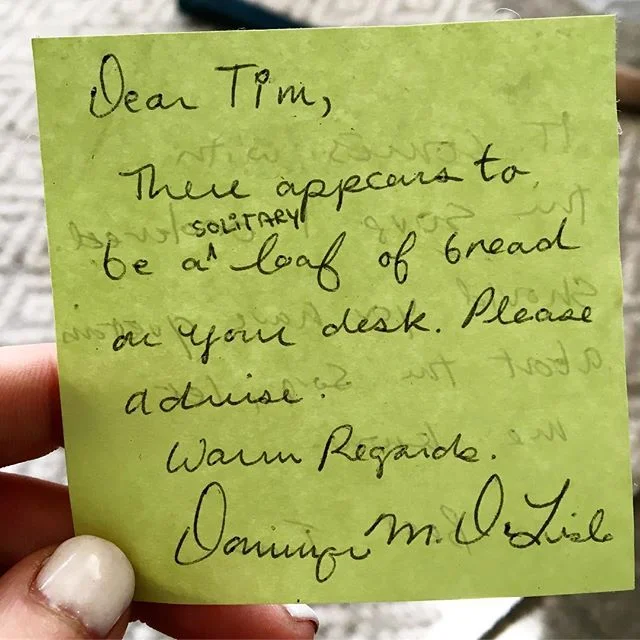 Dear Tim,
There appears to
be a ^ SOLITARY loaf of bread
on your desk. Please
advise.
Warm Regards.
M. DeLisle